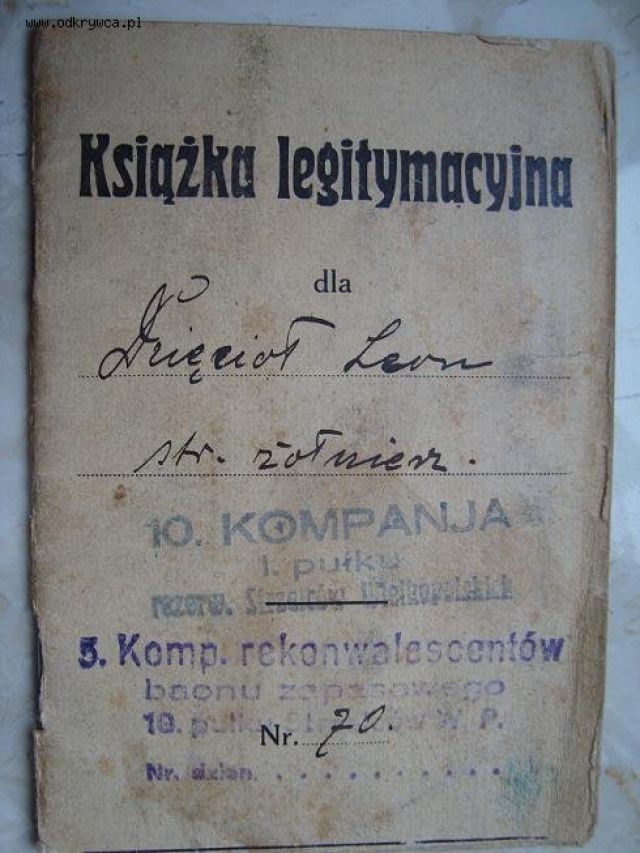 www.odkrywca.pl
Książka legitymacyjna
dla
Dzięcioł Leon
str. żołnierz.
10. KOMPANJA
1. pułku
rezerw. Strzelców Wielkopolskich
5. Komp. rekonwalescentów
baonu zapasowego
10. pułku W. P.
Nr. 70.
Nr. dzien. . . . . . . . . . .